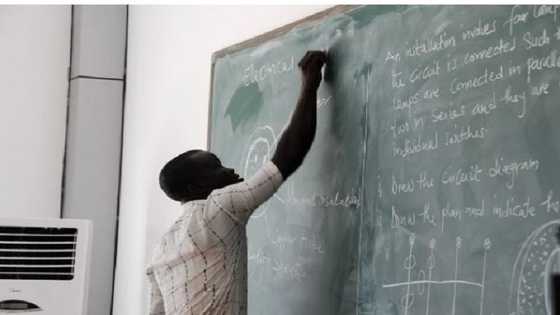 Electrical
An installation involves four lamps
the Circuit is connected such th
lamps are connected in parallel
two in series and they are
individual switches.
Draw the Circuit diagram
Draw the plan and indicate the